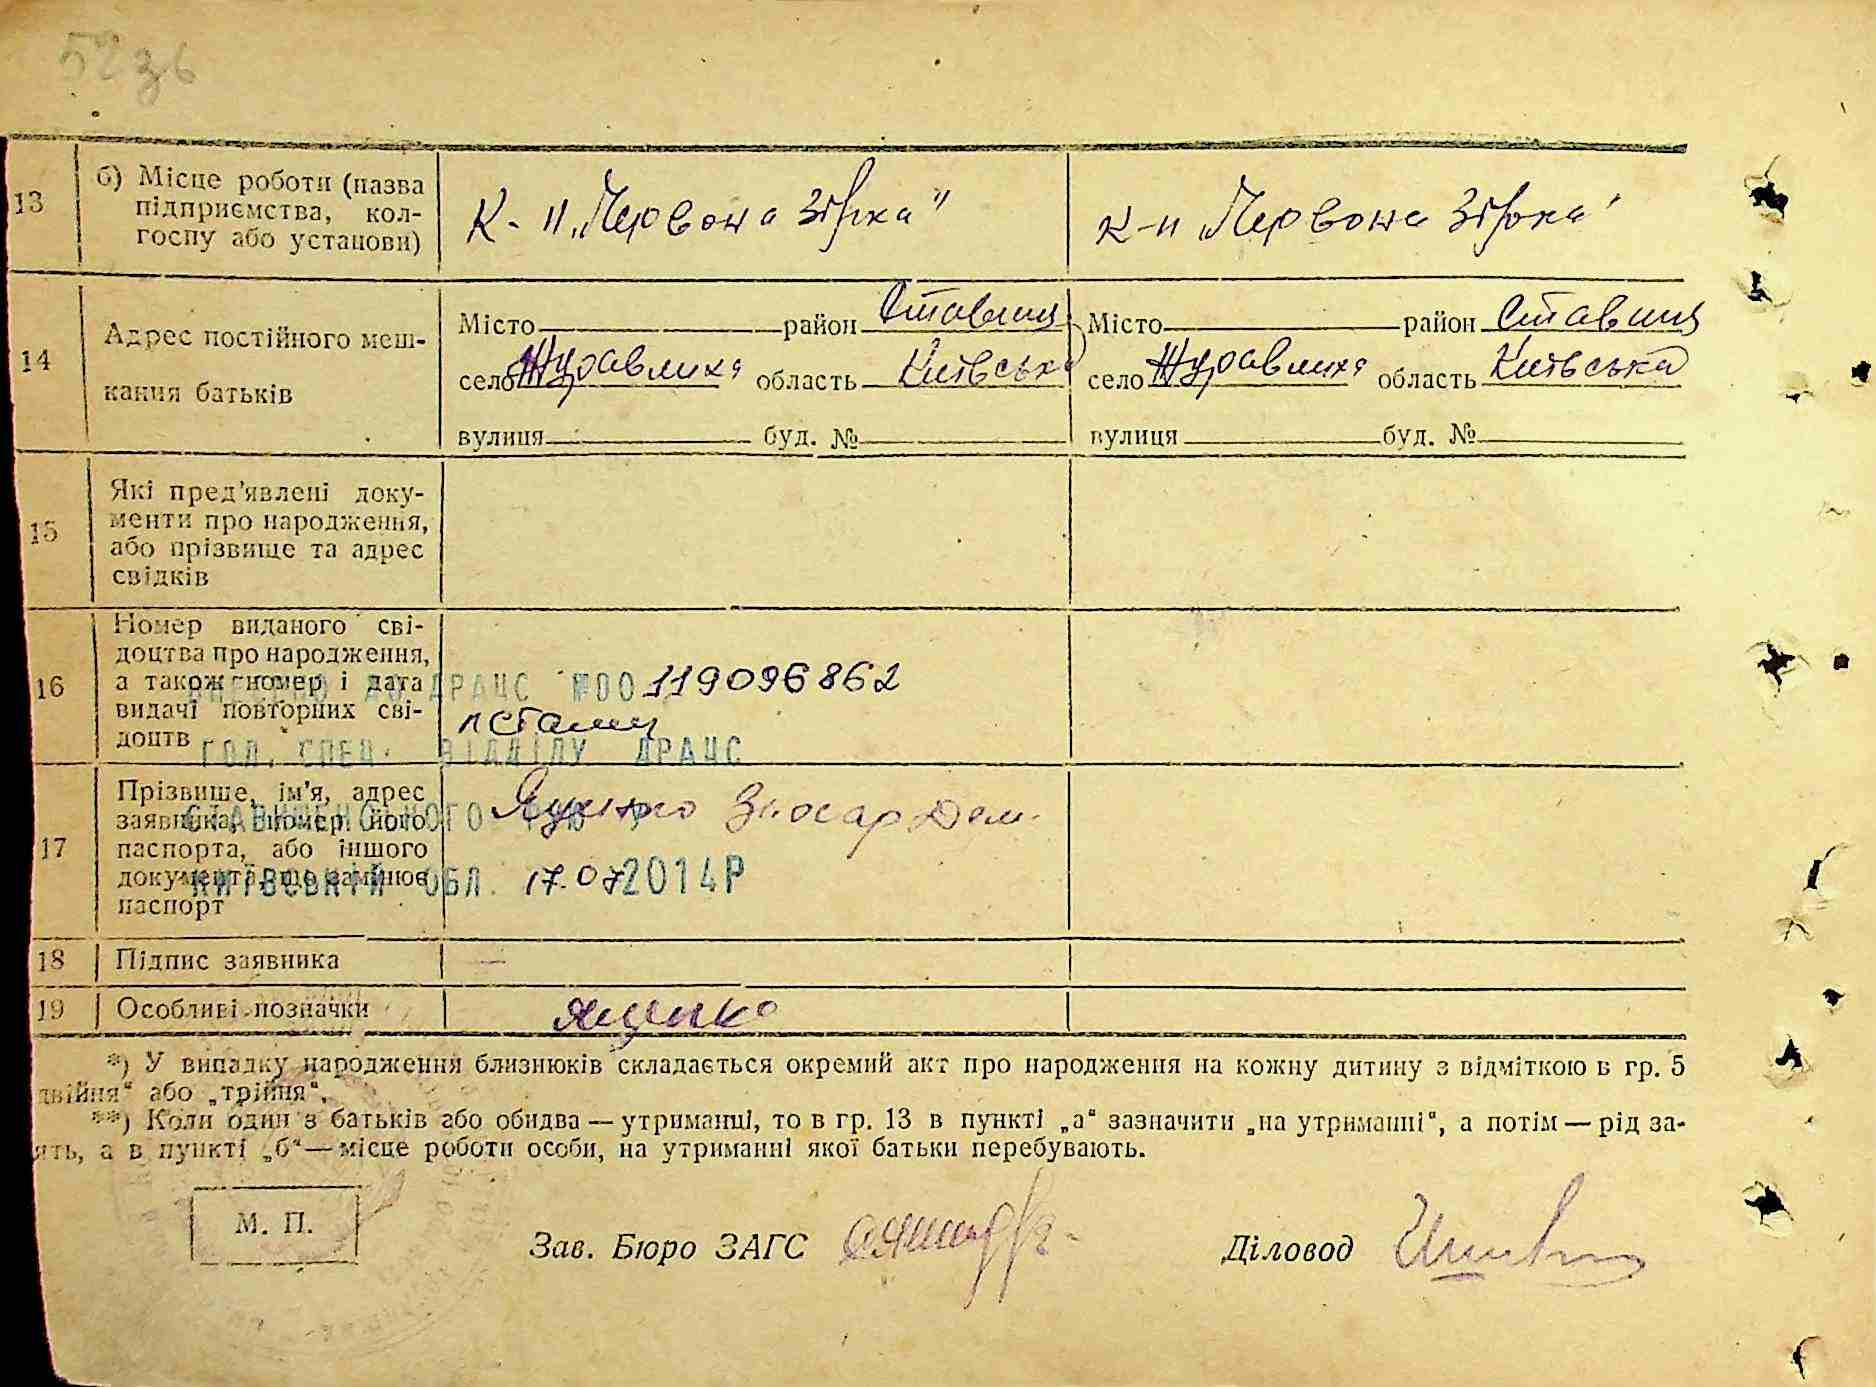 52 зв
13 б) Місце роботи (назва підприємства, кол-госпу або установи) К-п „Червона Зірка" К-п „Червона Зірка"
14 Адрес постійного меш-кання батьків
Місто район Ставищ Місто район Ставищ
село Журавлиха область Київська село Журавлиха область Київська
вулиця буд. № вулиця буд. №
15 Які пред'явлені доку-
менти про народження,
або прізвище та адрес
свідків
16 Номер виданого сві-
доцтва про народження,
а також номер і дата
видачі повторних сві-
доцтв
ДРАЦС №00 119096862
ГОЛ. СПЕЦ. ВІДДІЛУ ДРАЦС
17 Прізвище, ім'я, адрес
заявника, номер його
паспорта, або іншого
документа, що замінює
паспорт
СТАВИЩЕНСЬКОГО
КИЇВСЬКІЙ ОБЛ. 17.07 2014Р
18 Підпис заявника —
19 Особливі позначки Ященко
*) У випадку народження близнюків складається окремий акт про народження на кожну дитину з відміткою в гр. 5
двійня" або „трійня".
**) Коли один з батьків або обидва — утриманці, то в гр. 13 в пункті „а" зазначити „на утриманні", а потім — рід за-
ять, а в пункті „б" — місце роботи особи, на утриманні якої батьки перебувають.
М. П.
Зав. Бюро ЗАГС Діловод